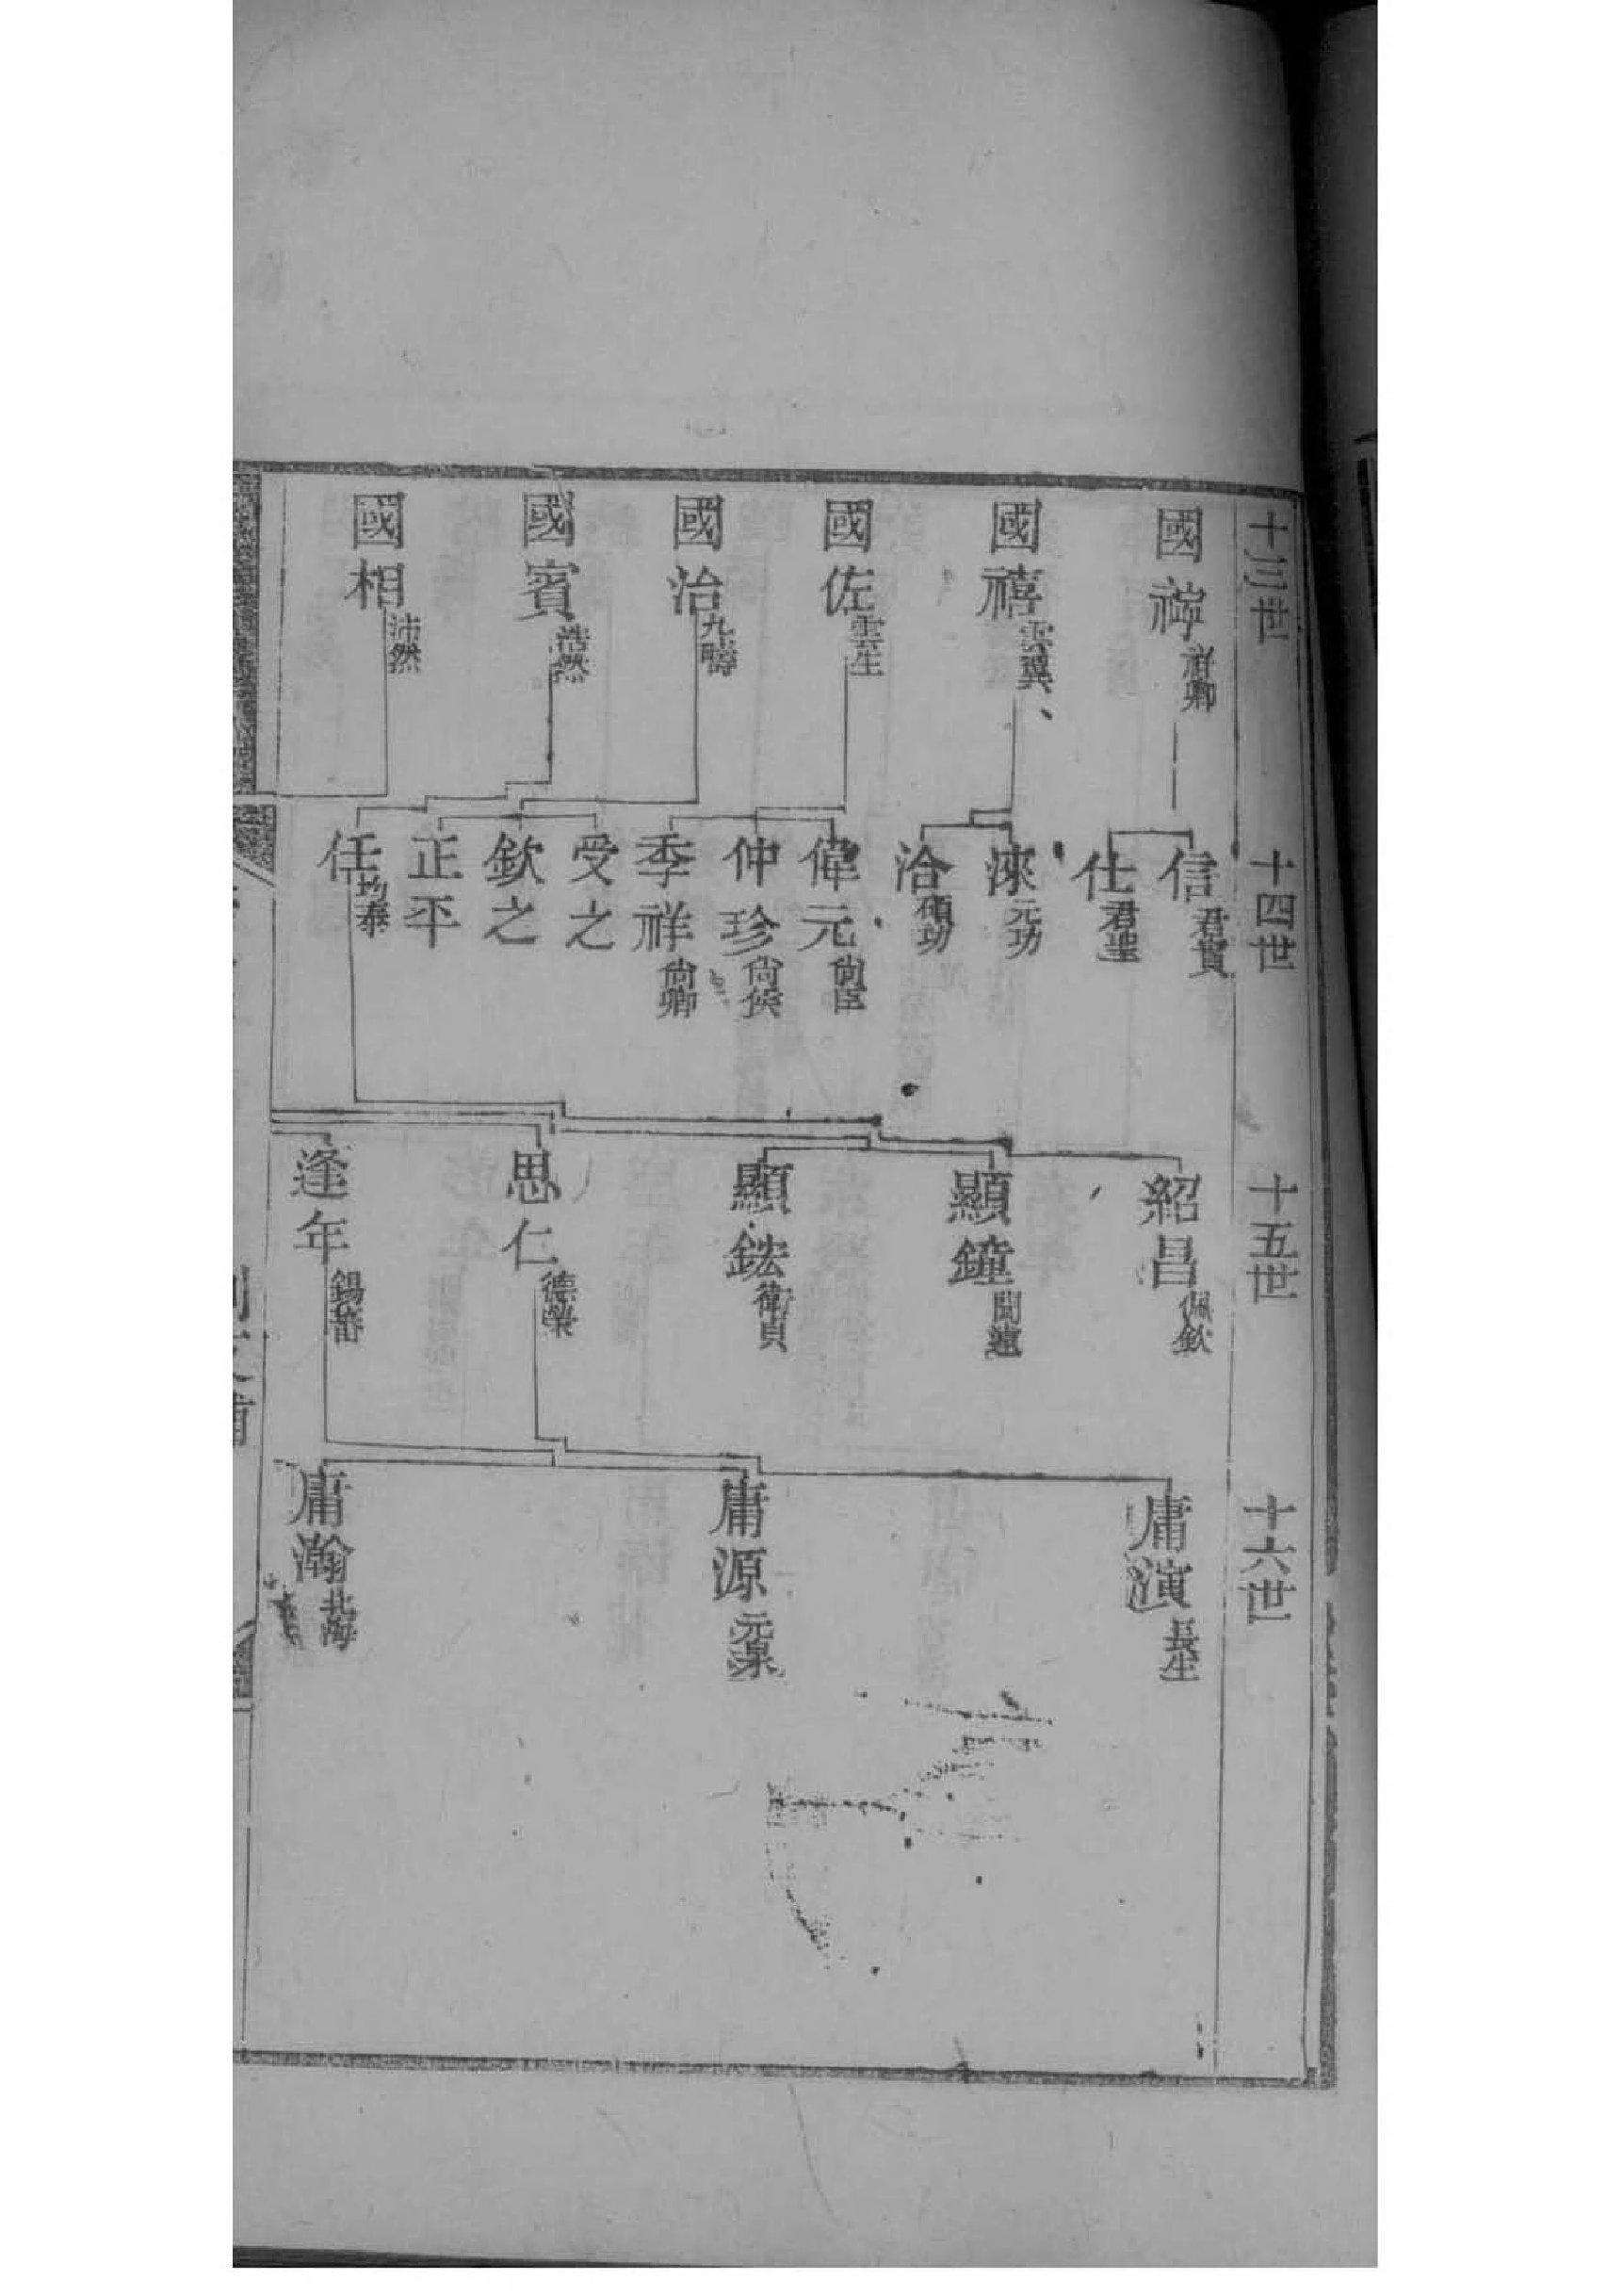 十三世
國禕祥卿
國禧雲翼、
國佐雲生
國治九疇
國賓浩然
國相沛然
十四世
信君實
仕君聖
淶元功
洽碩功
偉元尙臣
仲珍尙侯
季祥尙卿
受之
欽之
正平
任均泰
十五世
紹昌佩欽
顯鐘聞遠
顯鋐衛貞
思仁德榮
逢年錫蕃
十六世
庸演長生
庸源元泉
庸瀚北海